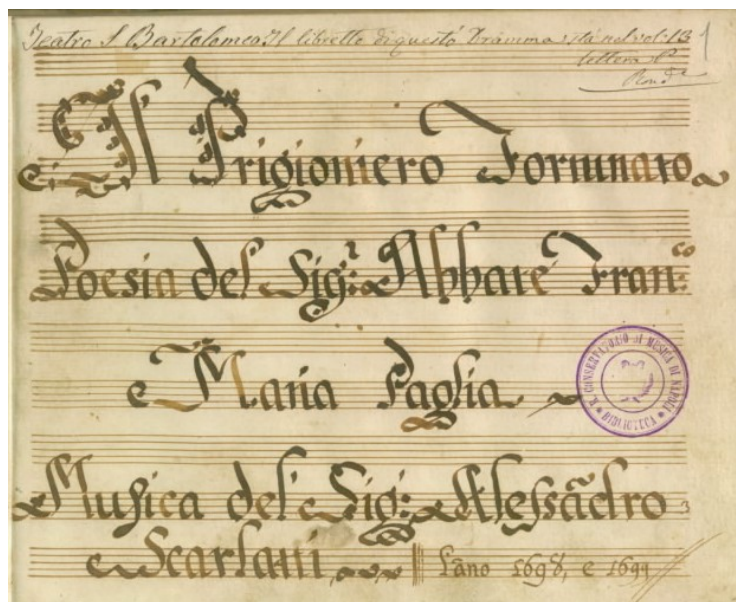 Teatro S. Bartolomeo Il libretto di questo Dramma stà nel vol: 13
lettera
1
Il Prigioniero Fortunato
Poesia del Sig.r Abbate Fran:co
Maria Paglia
R. CONSERVATORIO DI MUSICA DI NAPOLI
BIBLIOTECA
Musica del Sig: Alessãdro
Scarlatti L'año 1698, e 1699